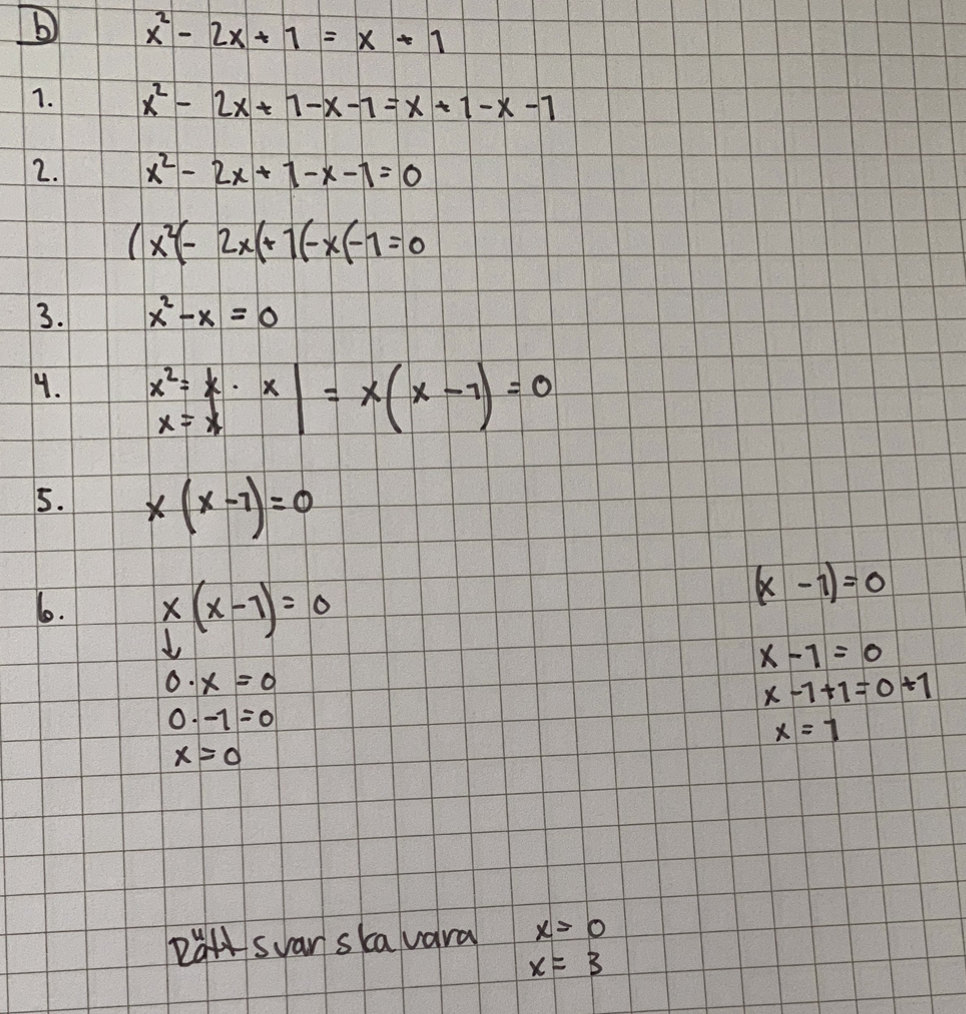 b) x² - 2x + 1 = x + 1
1. x² - 2x + 1 - x - 1 = x + 1 - x - 1
2. x² - 2x + 1 - x - 1 = 0
(x²(- 2x(+ 1(-x(-1 = 0
3. x² - x = 0
4. x² = x · x | = x(x - 1) = 0
x = x
5. x(x - 1) = 0
6. x(x - 1) = 0
↓
0 · x = 0
0 · -1 = 0
x = 0
(x - 1) = 0
x - 1 = 0
x - 1 + 1 = 0 + 1
x = 1
Rätt svar ska vara x = 0
x = 3